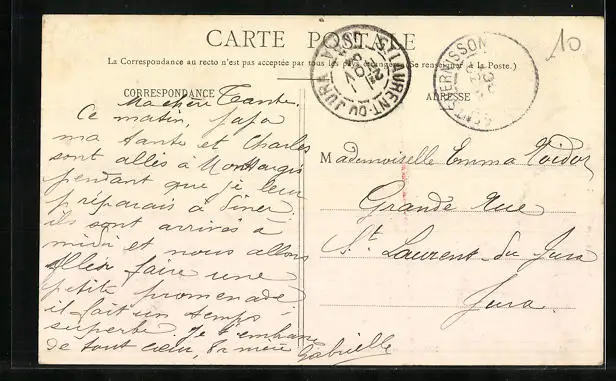 CARTE POSTALE
La Correspondance au recto n'est pas acceptée par tous les pays étrangers (Se renseigner à la Poste.)
CORRESPONDANCE
ADRESSE
10
ST LAURENT-DU-JURA
JURA
Ma chère Tante.
Ce matin, papa
ma tante et Charles
sont allés à Montargis
pendant que je leur
préparais à dîner.
ils sont arrivés à
midi et nous allons
aller faire une
petite promenade
il fait un temps
superbe. Je t'embrasse
de tout cœur,
Gabrielle
Mademoiselle Emma
Grande Rue
St Laurent du Jura
Jura